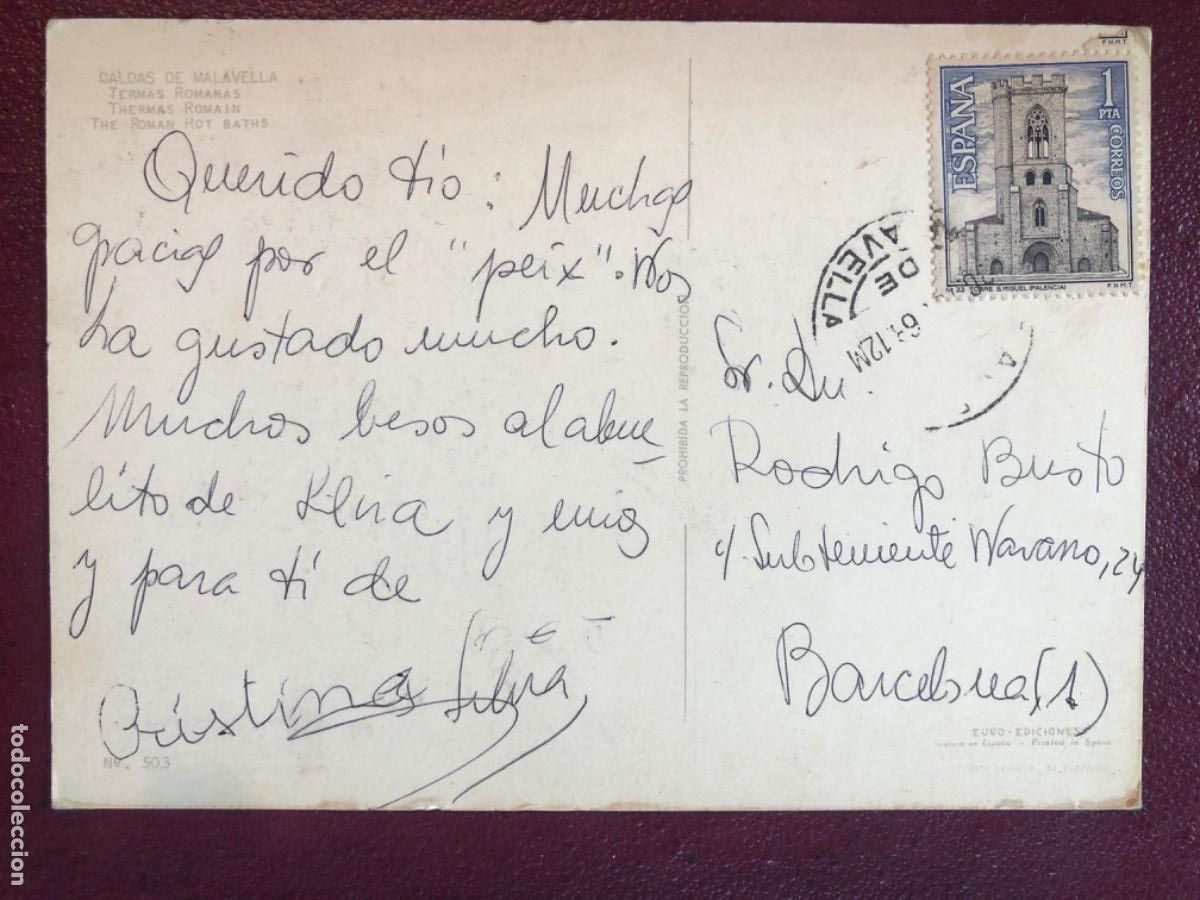 CALDAS DE MALAVELLA
TERMAS ROMANAS
THERMAS ROMAIN
THE ROMAN HOT BATHS
Querido tío: Muchas
gracias por el "peix". Nos
ha gustado mucho.
Muchos besos al abue
lito de Silvia y mios
y para tí de
Cristina Silvia
Nº. 503
PROHIBIDA LA REPRODUCCION
F.N.M.T.
ESPAÑA
1
PTA
CORREOS
Nº 33 TORRE S. MIGUEL (PALENCIA)
F.N.M.T.
DE
AVELLA
12M
Sr. Dn.
Rodrigo Busto
c/ Subteniente Navarro, 24
Barcelona (1)
EURO-EDICIONES
Impreso en España - Printed in Spain
todocoleccion.net